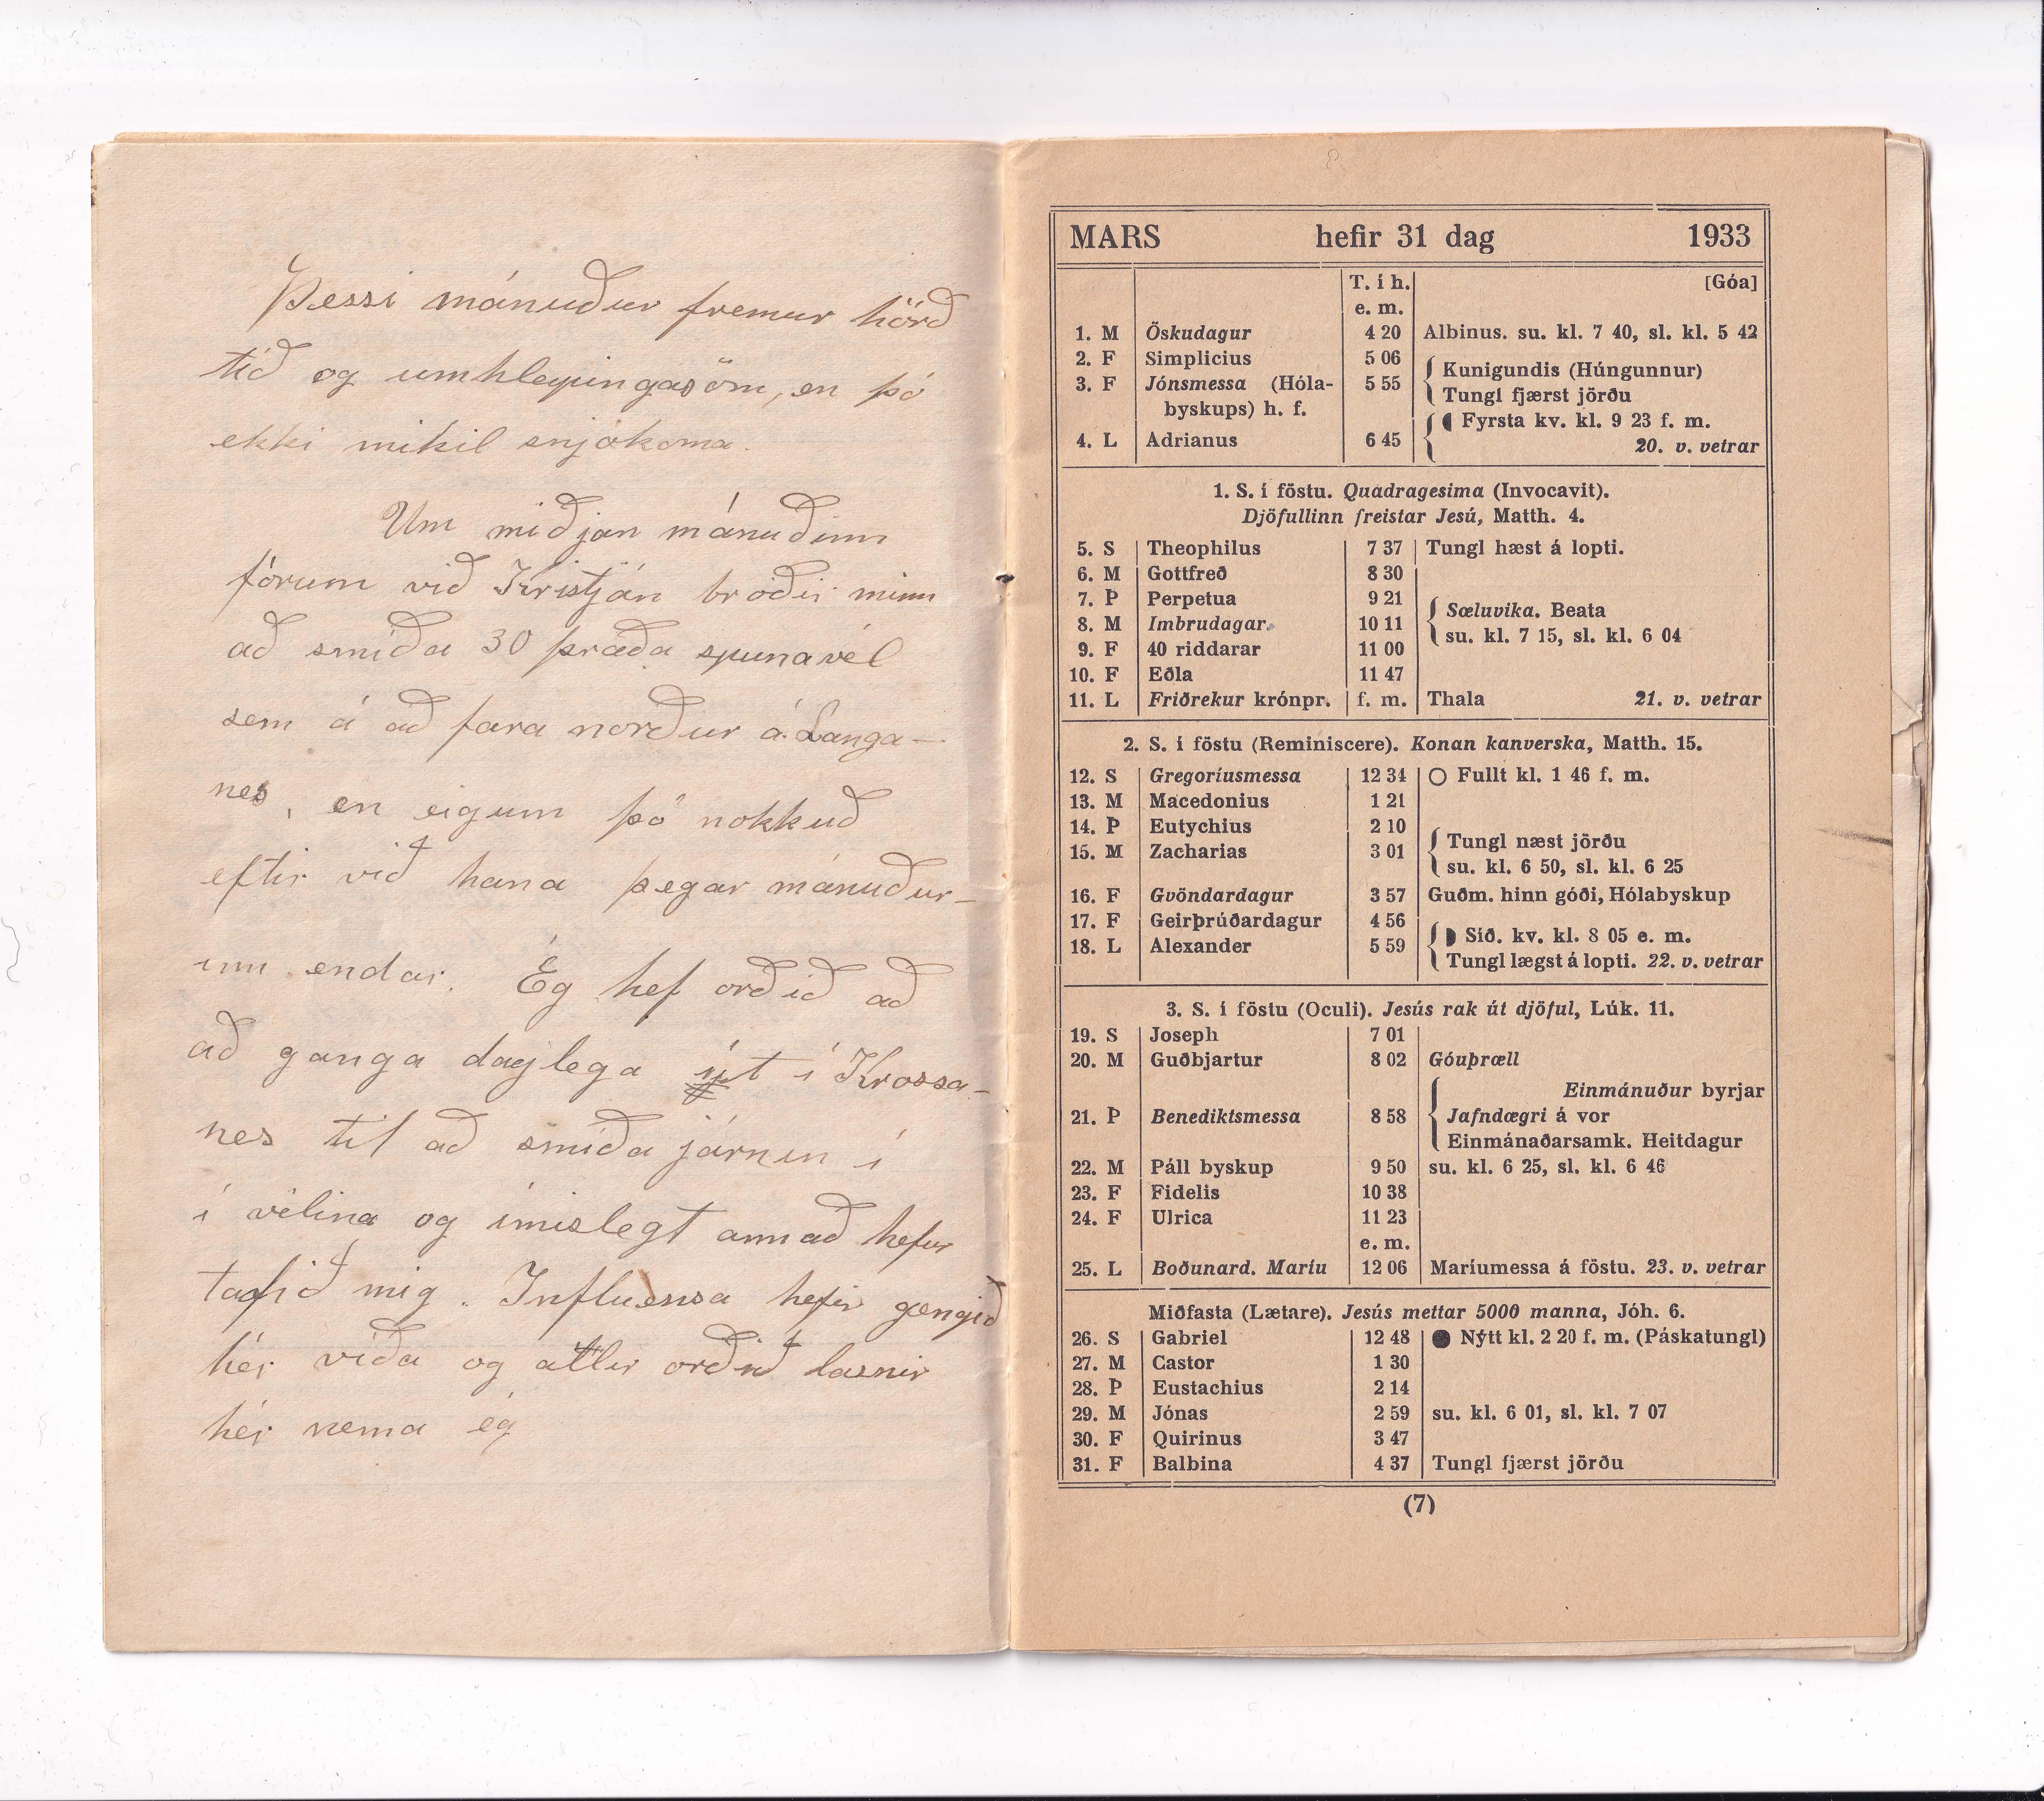 Þessi mánuður fremur hörð
tíð og umhleypingasöm, en þó
ekki mikil snjókoma.
Um miðjan mánuðinn
fórum við Kristján bróðir minn
að smíða 30 þráða spunavél
sem á að fara norður á Langa-
nes, en eigum þó nokkuð
eftir við hana þegar mánuður-
inn endar. Ég hef orðið að
að ganga daglega út í Krossa-
nes til að smíða járnin í
í vélina og ímislegt annað hefur
tafið mig. Influensa hefir gengið
hér víða og allir orðið lasnir
hér nema ég
MARS hefir 31 dag 1933
T. í h. [Góa]
e. m.
1. M Öskudagur 4 20 Albinus. su. kl. 7 40, sl. kl. 5 42
2. F Simplicius 5 06 Kunigundis (Húngunnur)
3. F Jónsmessa (Hóla- 5 55 Tungl fjærst jörðu
byskups) h. f. Fyrsta kv. kl. 9 23 f. m.
4. L Adrianus 6 45 20. v. vetrar
1. S. í föstu. Quadragesima (Invocavit).
Djöfullinn freistar Jesú, Matth. 4.
5. S Theophilus 7 37 Tungl hæst á lopti.
6. M Gottfreð 8 30
7. Þ Perpetua 9 21 Sæluvika. Beata
8. M Imbrudagar. 10 11 su. kl. 7 15, sl. kl. 6 04
9. F 40 riddarar 11 00
10. F Eðla 11 47
11. L Friðrekur krónpr. f. m. Thala 21. v. vetrar
2. S. í föstu (Reminiscere). Konan kanverska, Matth. 15.
12. S Gregoríusmessa 12 34 Fullt kl. 1 46 f. m.
13. M Macedonius 1 21
14. Þ Eutychius 2 10 Tungl næst jörðu
15. M Zacharias 3 01 su. kl. 6 50, sl. kl. 6 25
16. F Gvöndardagur 3 57 Guðm. hinn góði, Hólabyskup
17. F Geirþrúðardagur 4 56 Síð. kv. kl. 8 05 e. m.
18. L Alexander 5 59 Tungl lægst á lopti. 22. v. vetrar
3. S. í föstu (Oculi). Jesús rak út djöful, Lúk. 11.
19. S Joseph 7 01
20. M Guðbjartur 8 02 Góuþræll
Einmánuður byrjar
21. Þ Benediktsmessa 8 58 Jafndægri á vor
Einmánaðarsamk. Heitdagur
22. M Páll byskup 9 50 su. kl. 6 25, sl. kl. 6 46
23. F Fidelis 10 38
24. F Ulrica 11 23
e. m.
25. L Boðunard. Maríu 12 06 Maríumessa á föstu. 23. v. vetrar
Miðfasta (Lætare). Jesús mettar 5000 manna, Jóh. 6.
26. S Gabriel 12 48 Nýtt kl. 2 20 f. m. (Páskatungl)
27. M Castor 1 30
28. Þ Eustachius 2 14
29. M Jónas 2 59 su. kl. 6 01, sl. kl. 7 07
30. F Quirinus 3 47
31. F Balbina 4 37 Tungl fjærst jörðu
(7)